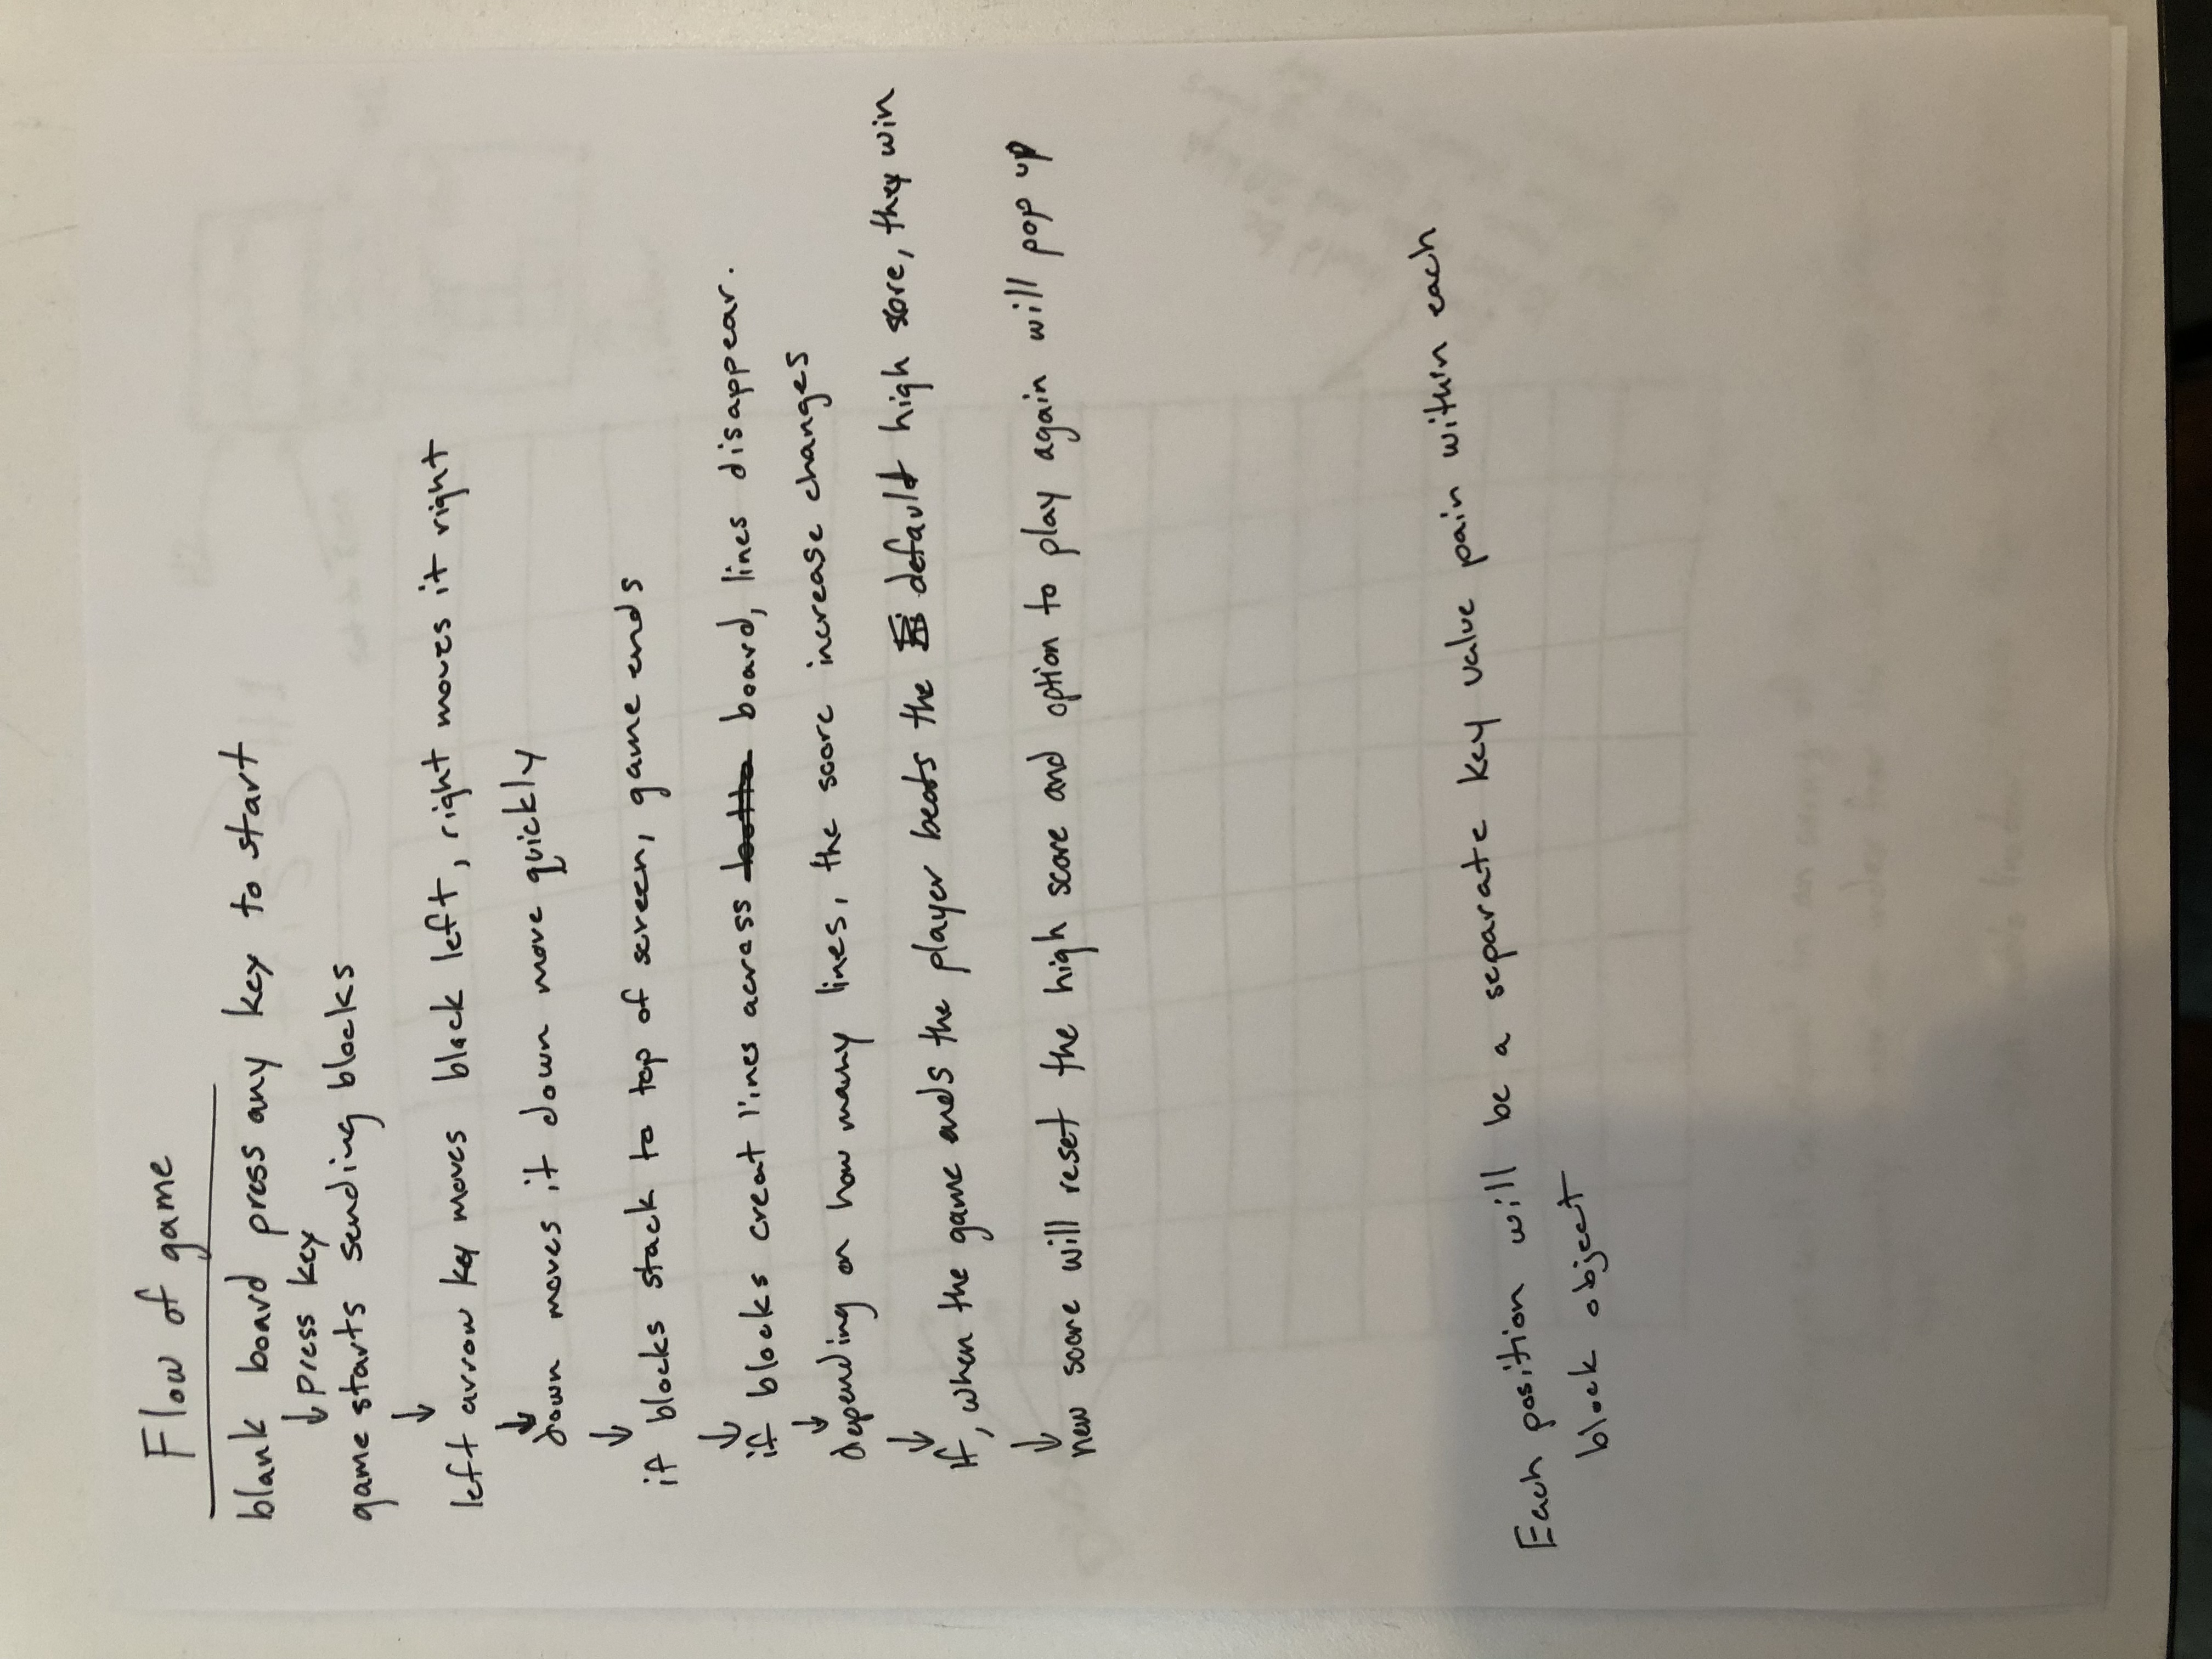 Flow of game
blank board press any key to start
↓ press key
game starts sending blocks
↓
left arrow key moves block left, right moves it right
↓
down moves it down more quickly
↓
if blocks stack to top of screen, game ends
↓
if blocks creat lines across board, lines disappear.
↓
depending on how many lines, the score increase changes
↓
If, when the game ends the player beats the default high score, they win
↓
new score will reset the high score and option to play again will pop up
Each position will be a separate key value pair within each
block object